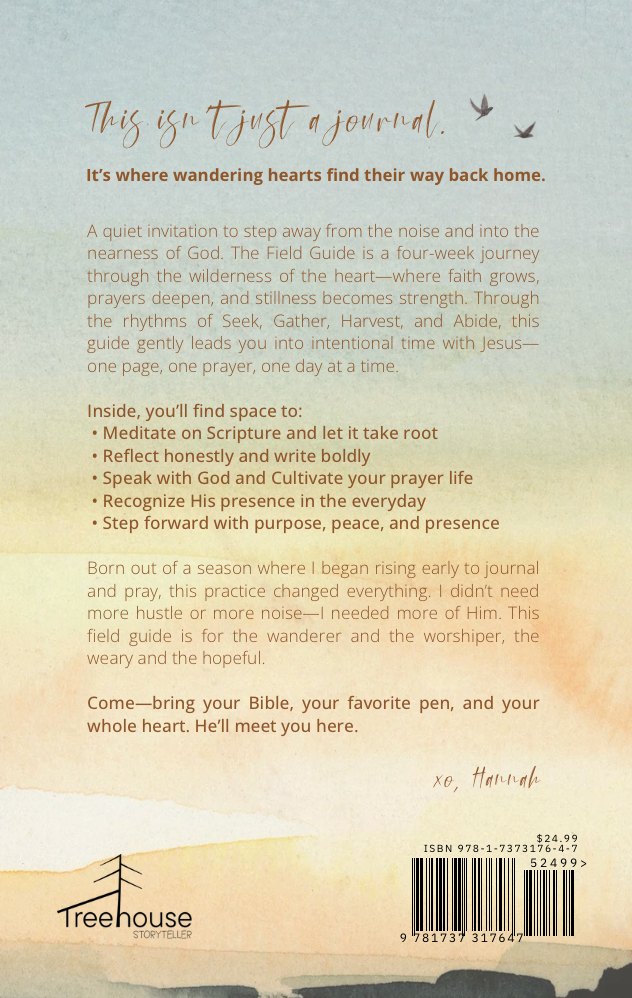 This isn't just a journal.
It’s where wandering hearts find their way back home.
A quiet invitation to step away from the noise and into the
nearness of God. The Field Guide is a four-week journey
through the wilderness of the heart—where faith grows,
prayers deepen, and stillness becomes strength. Through
the rhythms of Seek, Gather, Harvest, and Abide, this
guide gently leads you into intentional time with Jesus—
one page, one prayer, one day at a time.
Inside, you’ll find space to:
• Meditate on Scripture and let it take root
• Reflect honestly and write boldly
• Speak with God and Cultivate your prayer life
• Recognize His presence in the everyday
• Step forward with purpose, peace, and presence
Born out of a season where I began rising early to journal
and pray, this practice changed everything. I didn’t need
more hustle or more noise—I needed more of Him. This
field guide is for the wanderer and the worshiper, the
weary and the hopeful.
Come—bring your Bible, your favorite pen, and your
whole heart. He’ll meet you here.
xo, Hannah
$24.99
ISBN 978-1-7373176-4-7
52499>
9 781737 317647
Treehouse
STORYTELLER